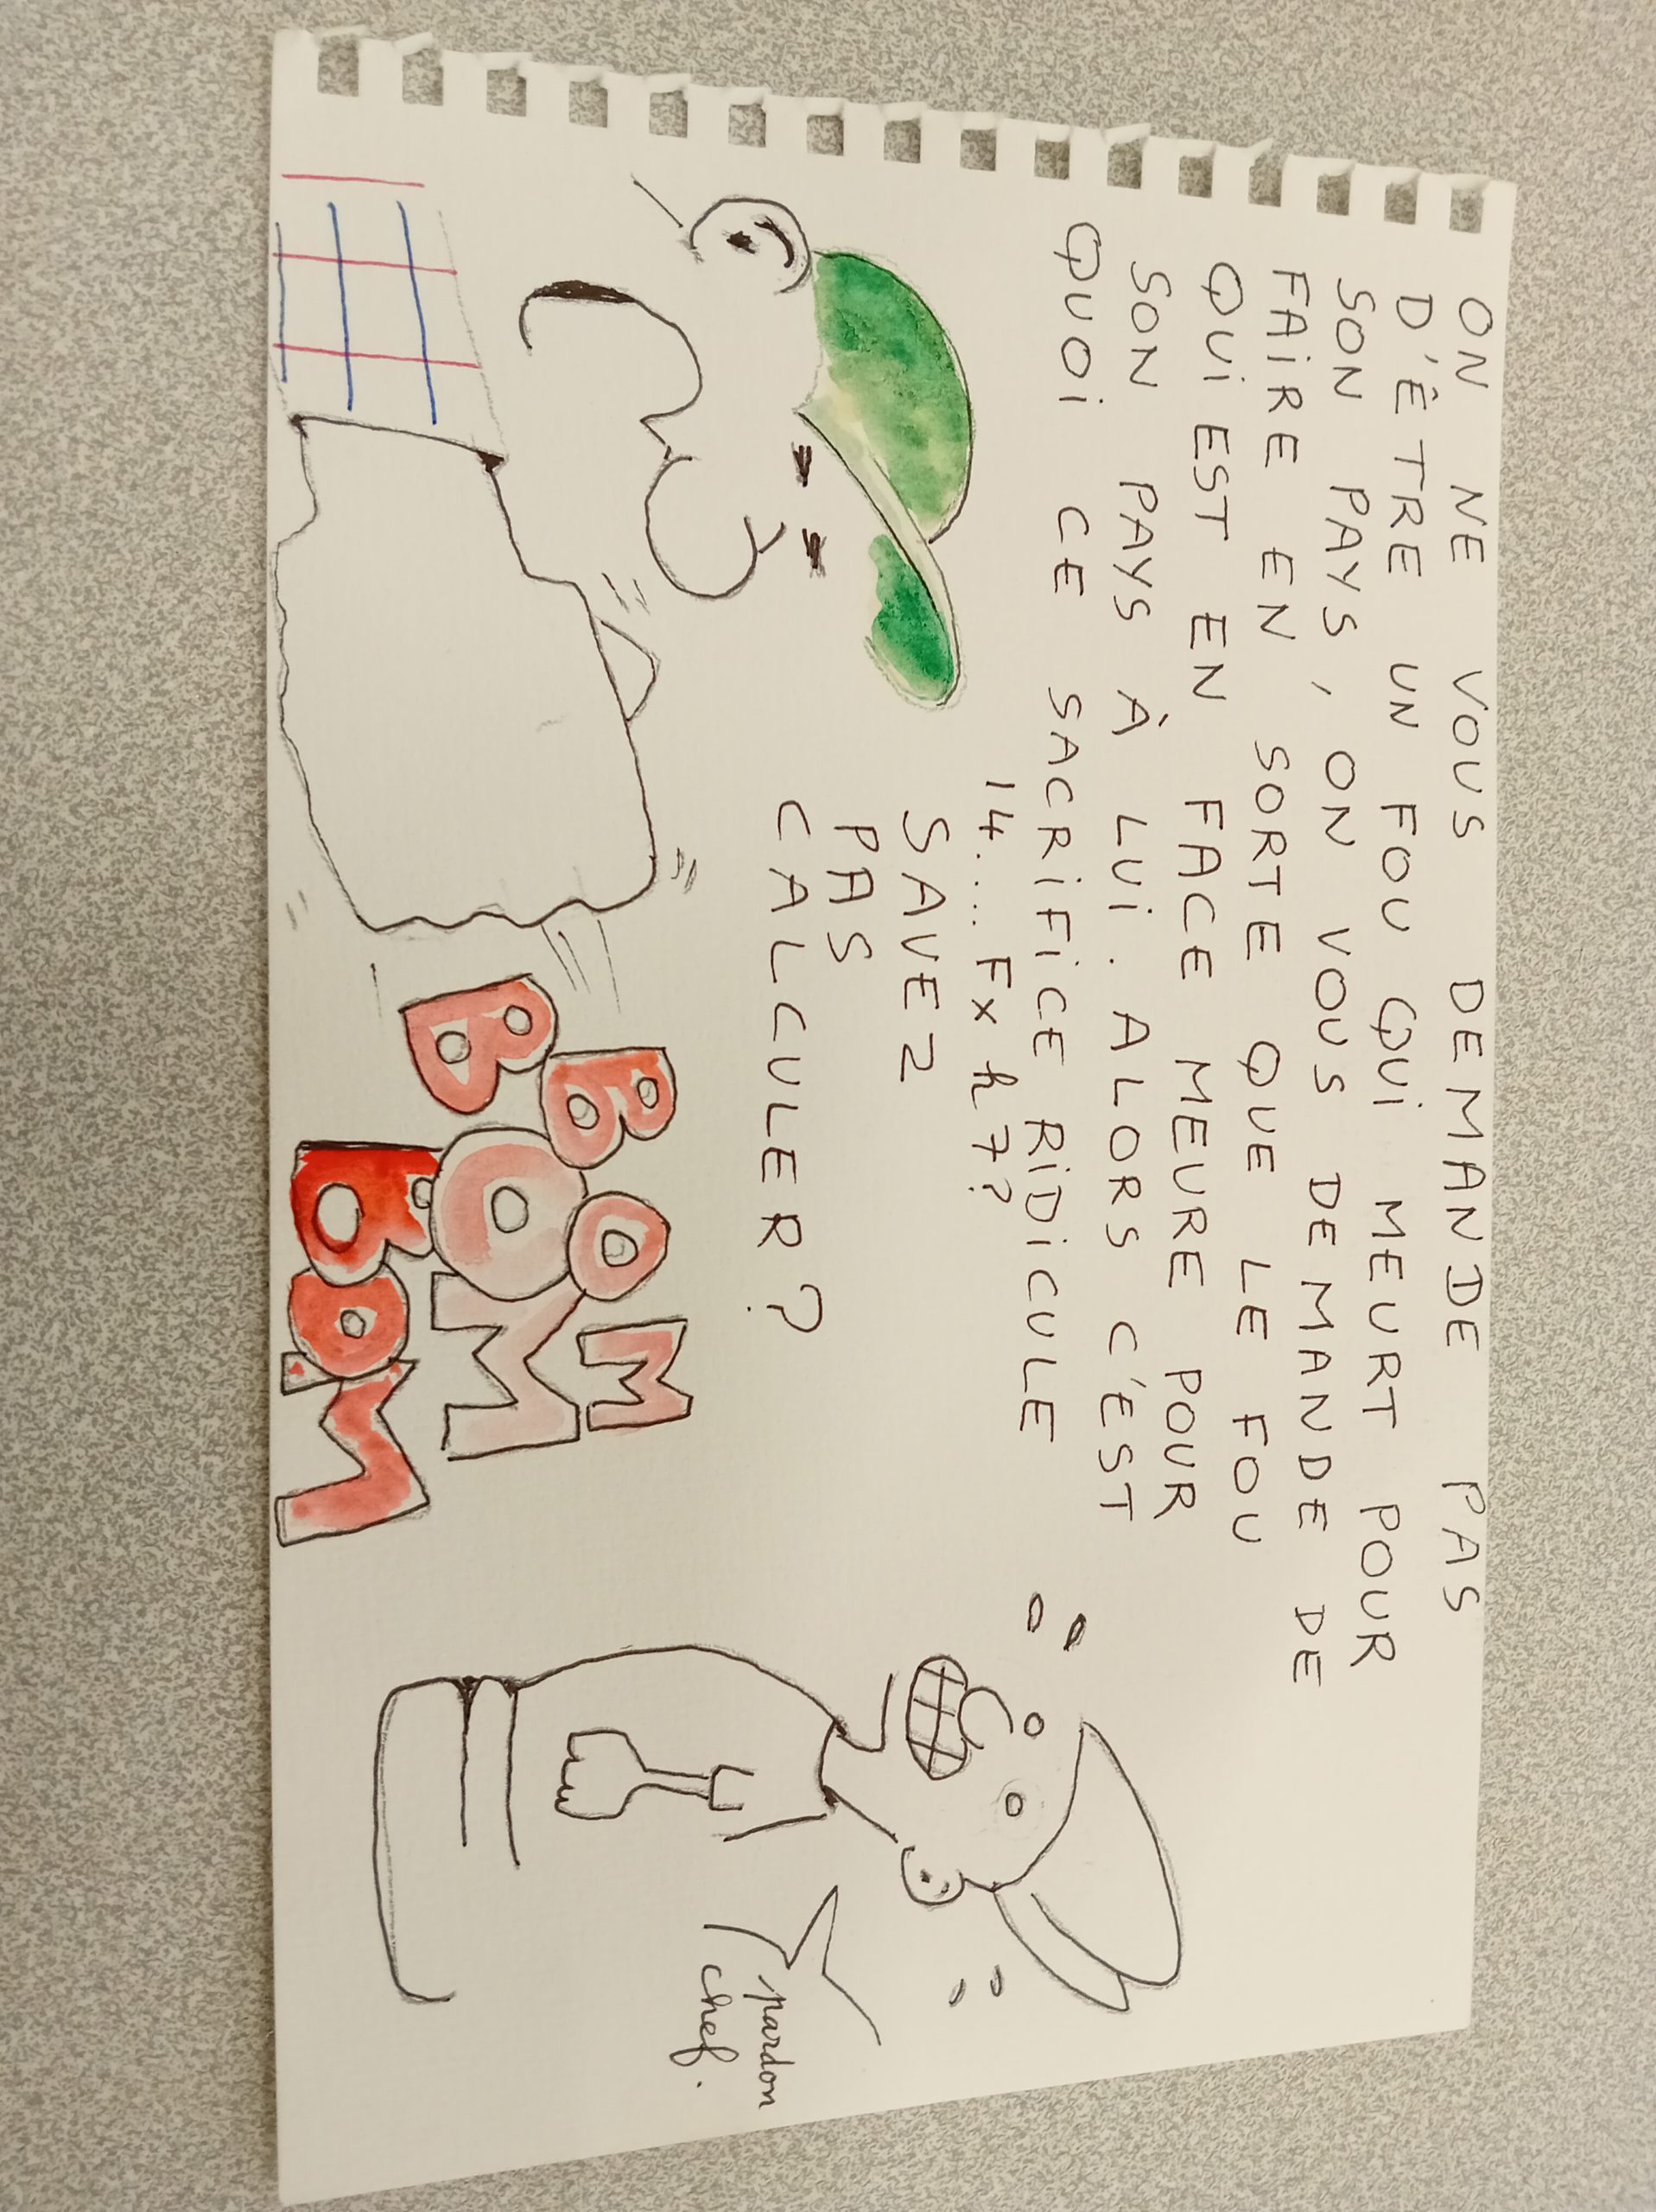 ON NE VOUS DEMANDE PAS
D'ÊTRE UN FOU QUI MEURT POUR
SON PAYS, ON VOUS DEMANDE DE
FAIRE EN SORTE QUE LE FOU
QUI EST EN FACE MEURE POUR
SON PAYS À LUI. ALORS C'EST
QUOI CE SACRIFICE RIDICULE
14.... Fxh7?
SAVEZ
PAS
CALCULER?
BOM
BOM
BOM
pardon
chef.